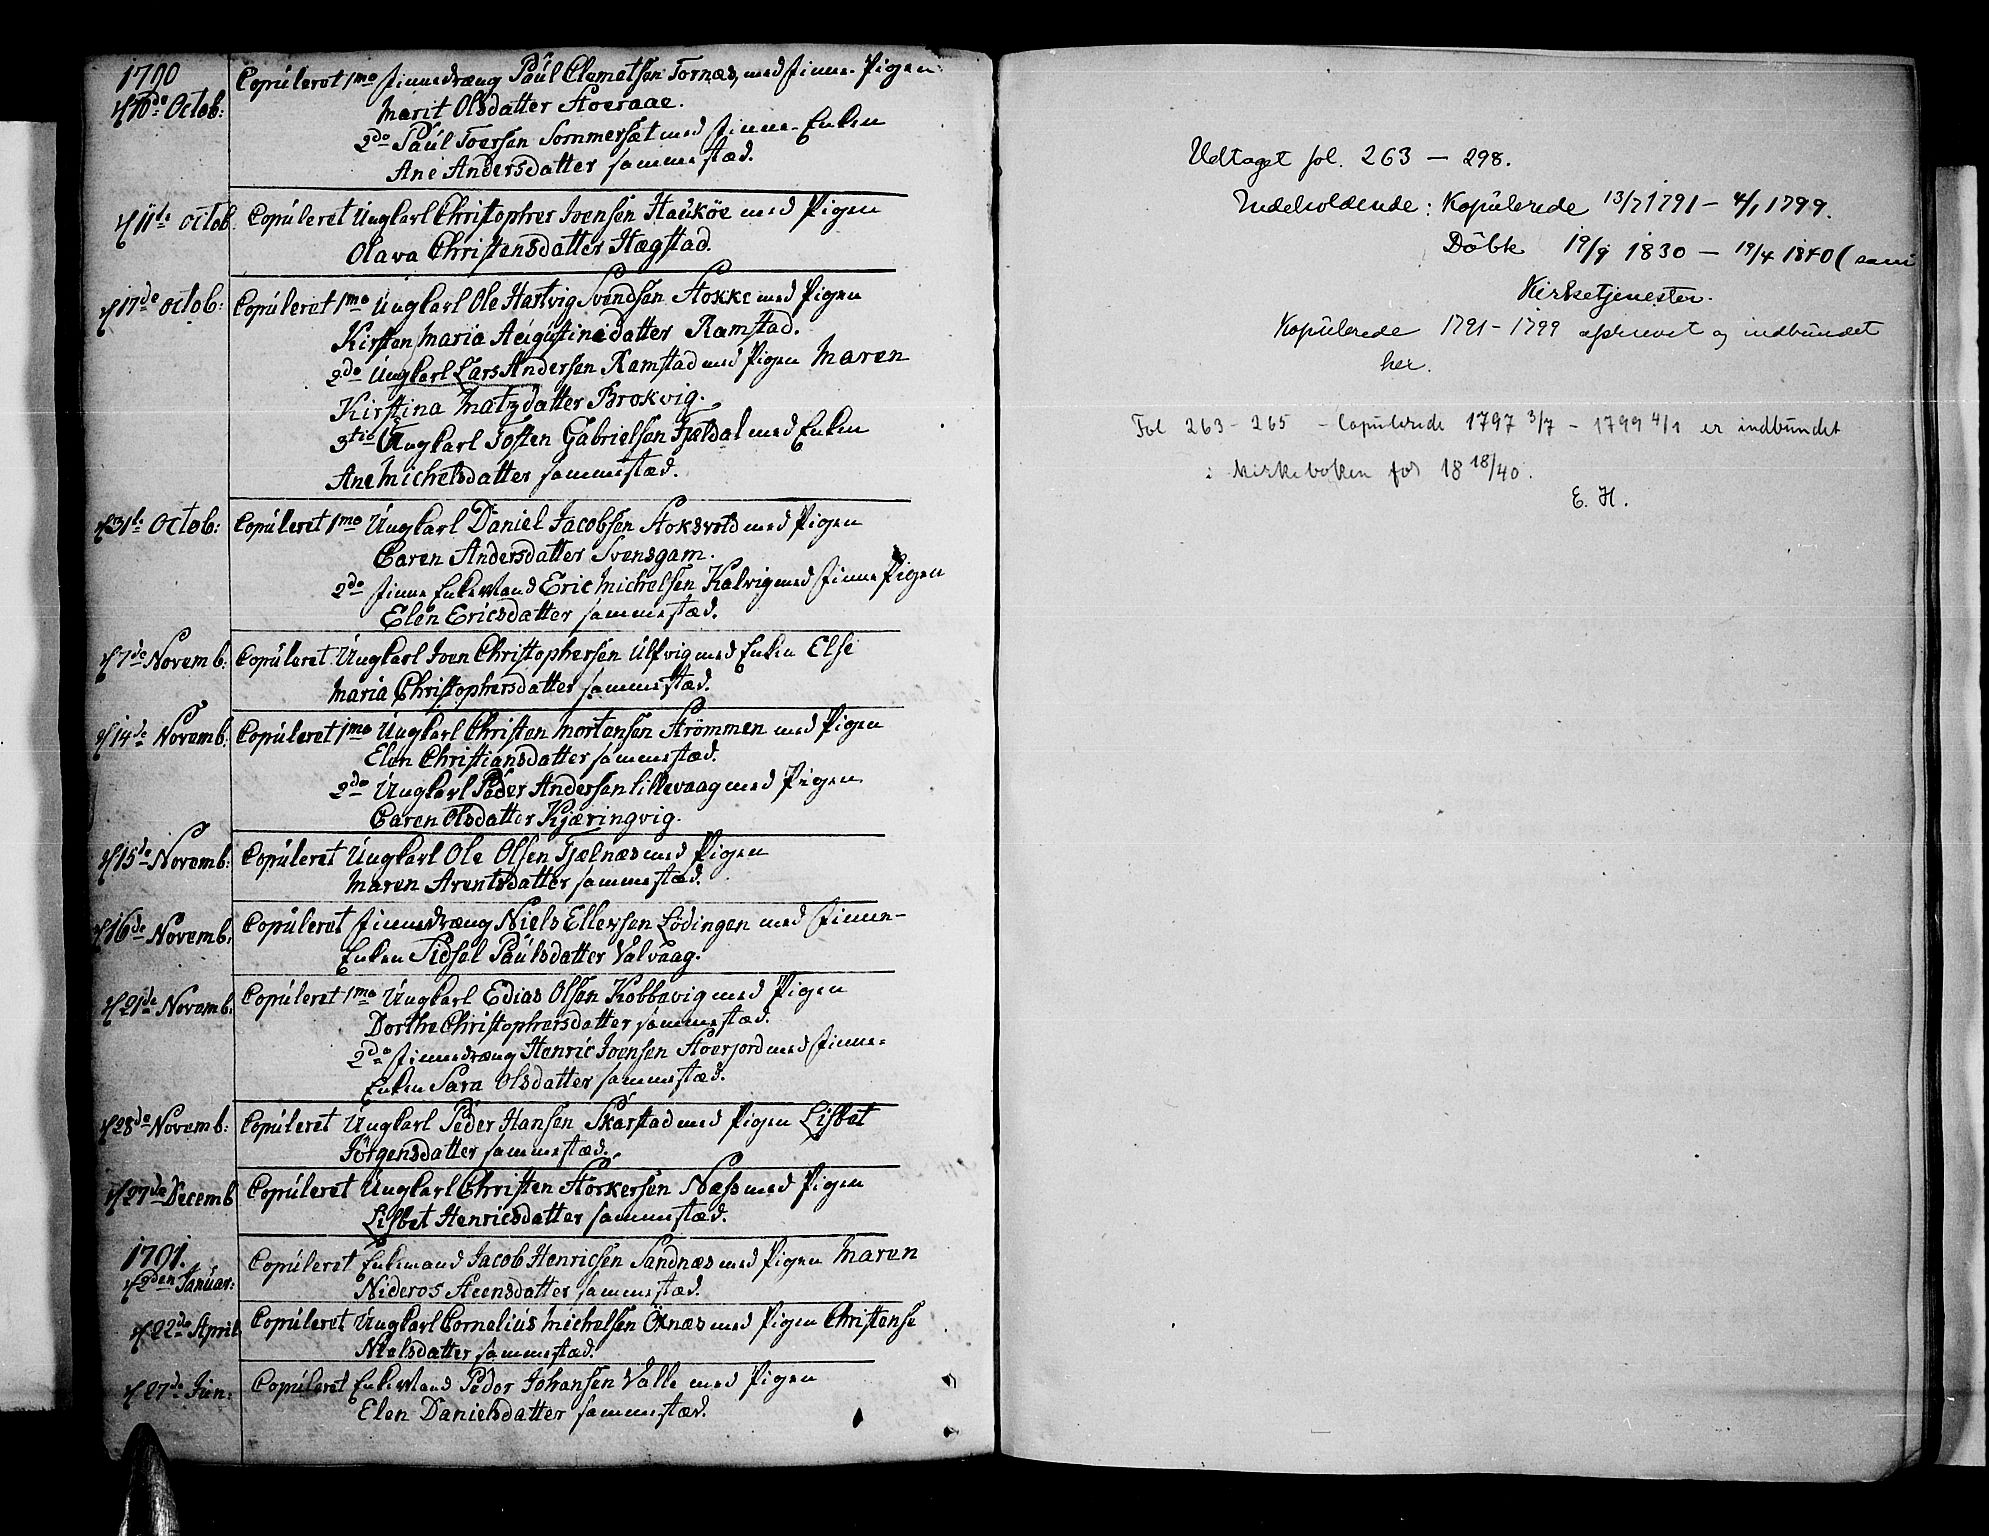 1790
d 10de Octob: Copúleret 1mo Finnedræng Paúl Clemetsen Tornæs, med Finne-Pigen
Marit Olsdatter Stoeraae.
2do Paúl Toersen Sommersæt med Finne-Enken
Ane Andersdatter sammestæd.
d 11te Octob. Copúleret Ungkarl Christopher Ivensen Haukøe med Pigen
Olava Christensdatter Hægstad.
d 17de Octob: Copúleret 1mo Ungkarl Ole Hartvig Svendsen Stokke med Pigen
Kirsten Maria Augustinusdatter Ramstad.
2do Ungkarl Lars Andersen Ramstad med Pigen Maren
Kirstina Matzdatter Brokvig.
3tio Ungkarl Tosten Gabrielsen Fjeldal med Enken
Ane Michelsdatter sammestæd.
d 31te Octob: Copúleret 1mo Ungkarl Daniel Jacobsen Stoksvold med Pigen
Caren Andersdatter Svensgam.
2do Finne Enkemand Eric Michelsen Kalvig med Finne Pigen
Elen Ericsdatter sammestæd.
d 7de Novemb: Copúleret Ungkarl Iven Christophersen Ulfvig med Enken Else
Maria Christophersdatter sammestæd.
d 14de Novemb. Copúleret 1mo Ungkarl Christen Mortensen Strømmen med Pigen
Elen Christiansdatter sammestæd.
2do Ungkarl Peder Andersen Lillevaag med Pigen
Caren Olsdatter Kjæringvig.
d 15de Novemb: Copúleret Ungkarl Ole Olsen Fjælnæs med Pigen
Maren Arentsdatter sammestæd.
d 16de Novemb. Copúleret Finnedræng Niels Ellevsen Lødingen med Finne-
Enken Sidsel Paúlsdatter Valvaag.
d 21de Novemb: Copúleret 1mo Ungkarl Edias Olsen Kobbevig med Pigen
Dorthe Christophersdatter sammestæd.
2do Finnedræng Henric Ivensen Stoerjord med Finne-
Enken Sara Olsdatter sammestæd.
d 28de Novemb: Copúleret Ungkarl Peder Hansen Skarstad med Pigen Lisbet
Jørgensdatter sammestæd.
d 27de Decemb Copúleret Ungkarl Christen Storkersen Næss med Pigen
Lisbet Henricsdatter sammestæd.
1791.
d 2den Januar: Copúleret Enkemand Jacob Henricsen Sandnæs med Pigen Maren
Nideros Steensdatter sammestæd.
d 22de April Copúleret Ungkarl Cornelius Michelsen Öxnæs med Pigen Christense
Nielsdatter sammestæd.
d 27de Jun: Copúleret Enkemand Peder Johansen Valle med Pigen
Elen Danielsdatter sammestæd.
Udtaget fol. 263 — 298.
Indeholdende: Kopulerede 13/7 1791 — 4/1 1799.
Döbte 19/9 1830 — 19/4 1840 (
Kirketjenester.
Kopulerede 1791 - 1799 afskrevet og indbundet
her.
Fol 263 - 265 - Copulerede 1797 3/7 - 1799 4/1 er indbundet
i kirkeboken for 18 18/40.
E. H.